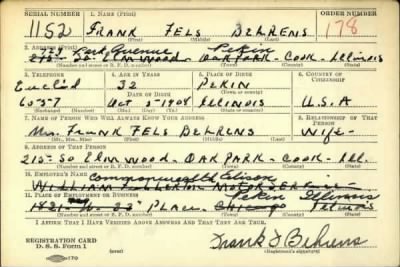 SERIAL NUMBER 1. NAME (Print) ORDER NUMBER
1152 FRANK FELS BEHRENS 178
(First) (Middle) (Last)
2. ADDRESS (Print)
729 Park Avenue Pekin
215 - So - ELM WOOD - OAK PARK - COOK - ILLINOIS
(Number and street or R. F. D. number) (Town) (County) (State)
3. TELEPHONE 4. AGE IN YEARS 5. PLACE OF BIRTH 6. COUNTRY OF CITIZENSHIP
Euclid 32 PEKIN
DATE OF BIRTH (Town or county)
6035-7 Oct 2 - 1908 ILLINOIS U.S.A
(Exchange) (Number) (Mo.) (Day) (Yr.) (State or country)
7. NAME OF PERSON WHO WILL ALWAYS KNOW YOUR ADDRESS 8. RELATIONSHIP OF THAT PERSON
Mrs. FRANK FELS BEHRENS WIFE -
(Mr., Mrs., Miss) (First) (Middle) (Last)
9. ADDRESS OF THAT PERSON
215 - So ELM WOOD - OAK PARK - COOK - ILL.
(Number and street or R. F. D. number) (Town) (County) (State)
10. EMPLOYER'S NAME Commonwealth Edison
WILLIAM MOTOR SERVICE
11. PLACE OF EMPLOYMENT OR BUSINESS Pekin Illinois
1821 - W - 22 PLACE - CHICAGO ILLINOIS
(Number and street or R. F. D. number) (Town) (County) (State)
I AFFIRM THAT I HAVE VERIFIED ABOVE ANSWERS AND THAT THEY ARE TRUE.
REGISTRATION CARD
D. S. S. Form 1
Frank F Behrens
(Registrant's signature)